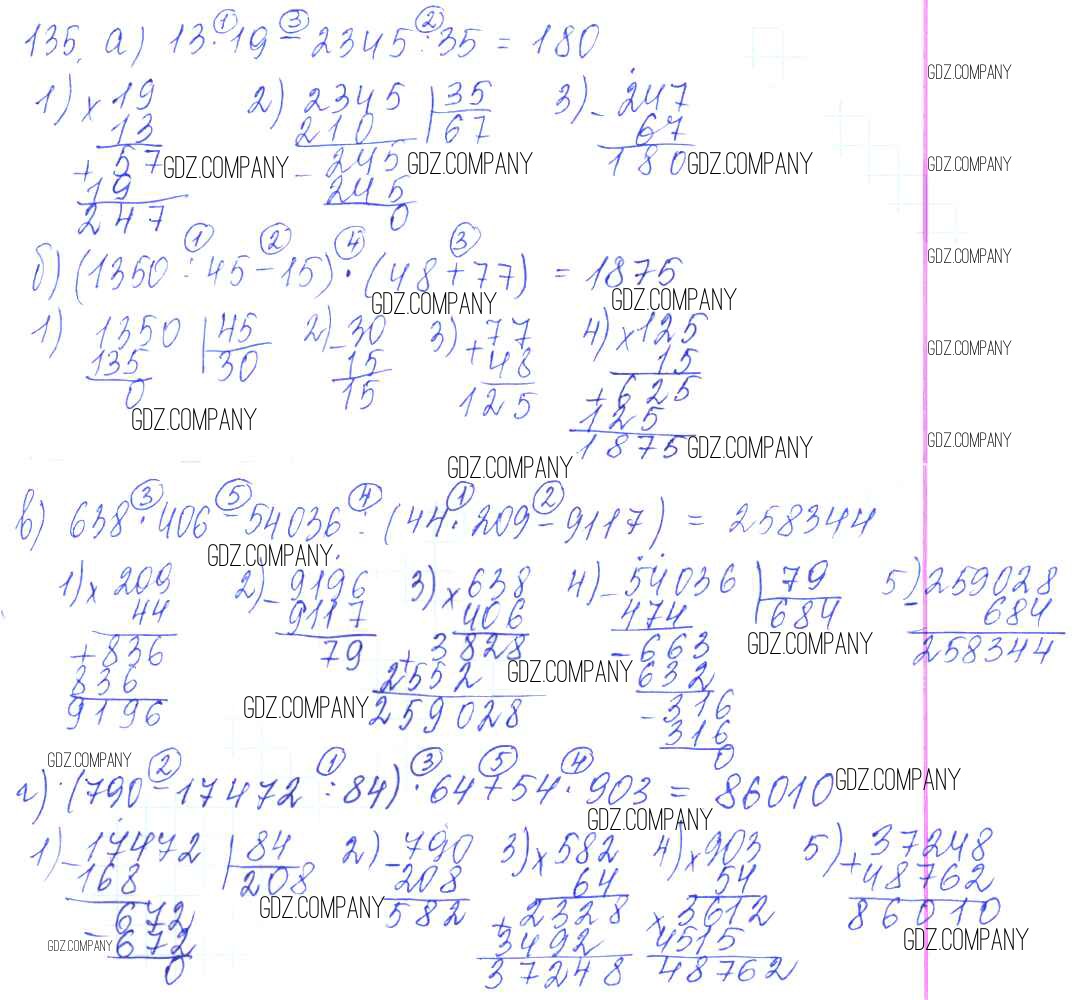 135. а) 13 · 19 - 2345 : 35 = 180
① ③ ②
1) × 19 2) 2345 | 35 3) - 247
13 210 67 67
+ 57 - 245 180
19 245
247 0
GDZ.COMPANY GDZ.COMPANY GDZ.COMPANY GDZ.COMPANY
① ② ④ ③
б) (1350 : 45 - 15) · (48 + 77) = 1875
GDZ.COMPANY GDZ.COMPANY GDZ.COMPANY
1) 1350 | 45 2) - 30 3) + 77 4) × 125
135 30 15 48 15
0 15 125 + 625
125
1875
GDZ.COMPANY GDZ.COMPANY GDZ.COMPANY GDZ.COMPANY
GDZ.COMPANY
③ ⑤ ④ ① ②
в) 638 · 406 - 54036 : (44 · 209 - 9117) = 258344
GDZ.COMPANY
1) × 209 2) - 9196 3) × 638 4) - 54036 | 79 5) - 259028
44 9117 406 474 684 684
+ 836 79 + 3828 - 663 258344
836 2552 632
9196 259028 - 316
316
0
GDZ.COMPANY GDZ.COMPANY GDZ.COMPANY
GDZ.COMPANY
② ① ③ ⑤ ④
г) (790 - 17472 : 84) · 64 + 54 · 903 = 86010
GDZ.COMPANY GDZ.COMPANY
1) - 17472 | 84 2) - 790 3) × 582 4) × 903 5) + 37248
168 208 208 64 54 48762
- 672 582 + 2328 × 3612 86010
672 3492 4515
0 37248 48762
GDZ.COMPANY GDZ.COMPANY GDZ.COMPANY
GDZ.COMPANY
GDZ.COMPANY